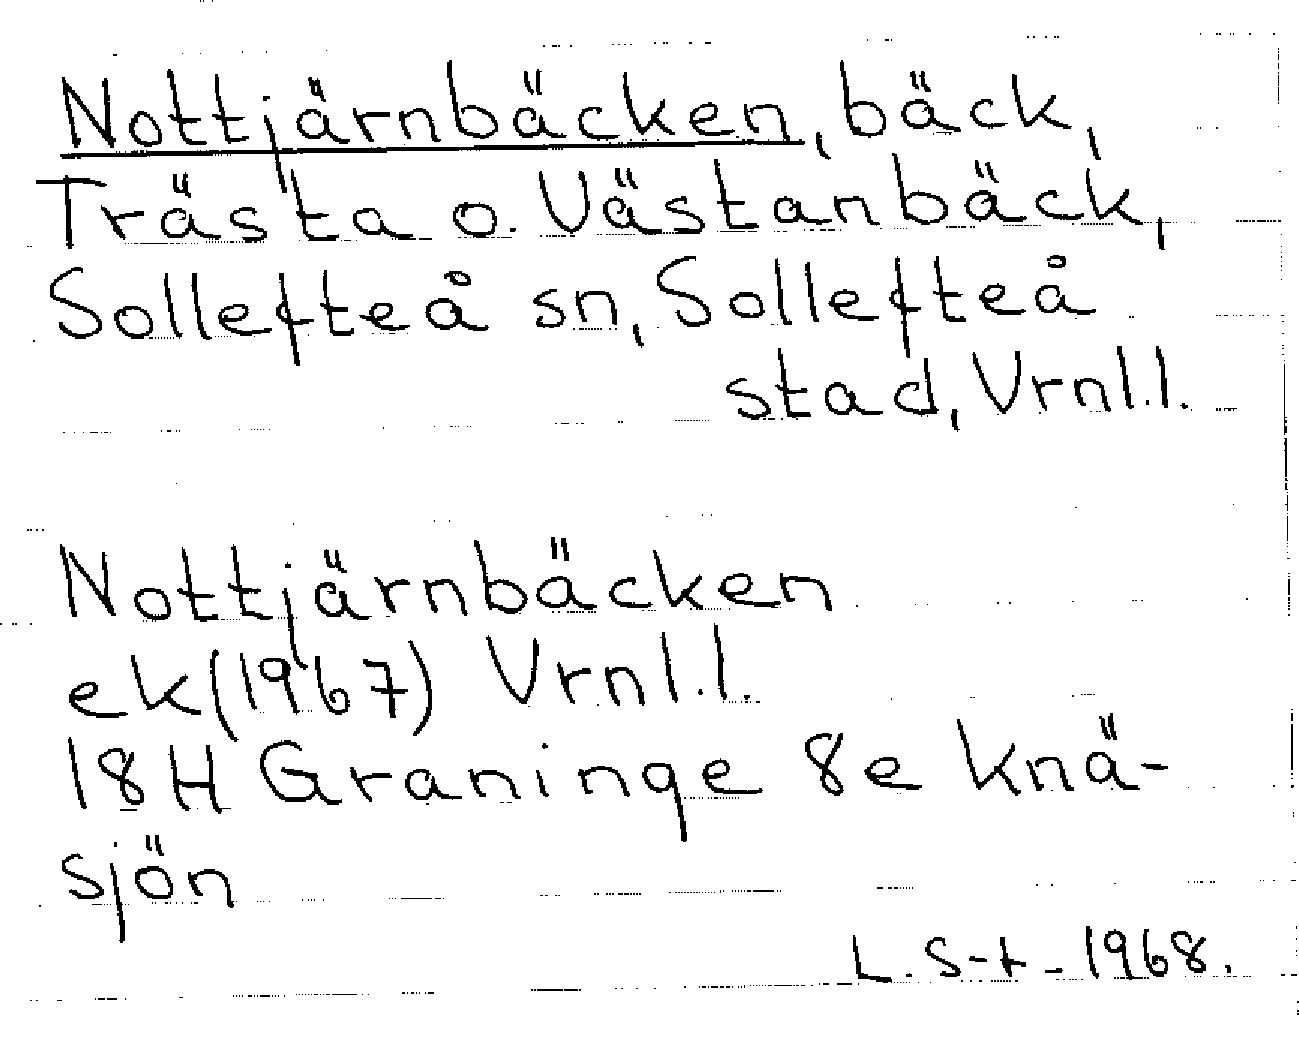 Nottjärnbäcken, bäck,
Trästa o. Västanbäck,
Sollefteå sn, Sollefteå
stad, Vrnl.l.
Nottjärnbäcken
ek(1967) Vrnl.l.
18H Graninge 8e Knä-
sjön
L. S-t - 1968.